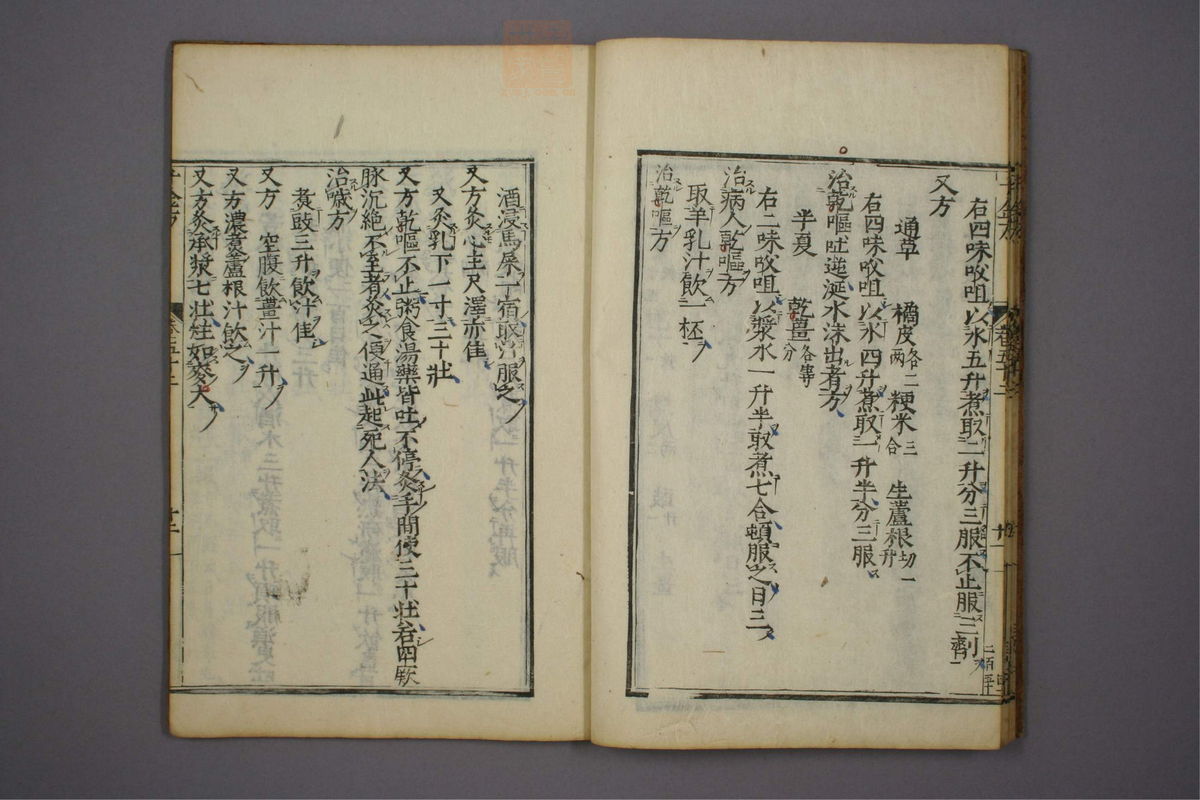 右四味㕮咀以水五升煮取二升分三服不止服三劑
又方
通草 橘皮各二両 粳米三合 生蘆根切一升
右四味㕮咀以水四升煮取一升半分三服
治乾嘔吐逆涎水沫出者方
半夏 乾薑各等分
右二味㕮咀以漿水一升半取煮七合頓服之日三
治病人乾嘔方
取羊乳汁飲一杯
治乾嘔方
酒浸馬屎一宿取汁服之
又方灸心主尺澤亦佳
又灸乳下一寸三十壯
又方乾嘔不止粥食湯藥皆吐不停灸手間使三十壯若四厥
脉沉絕不至者灸之便通此起死人法
治噦方
煮豉三升飲汁佳
又方 空腹飲薑汁一升
又方濃煮蘆根汁飲之
又方灸承漿七壯炷如麥大
千金方